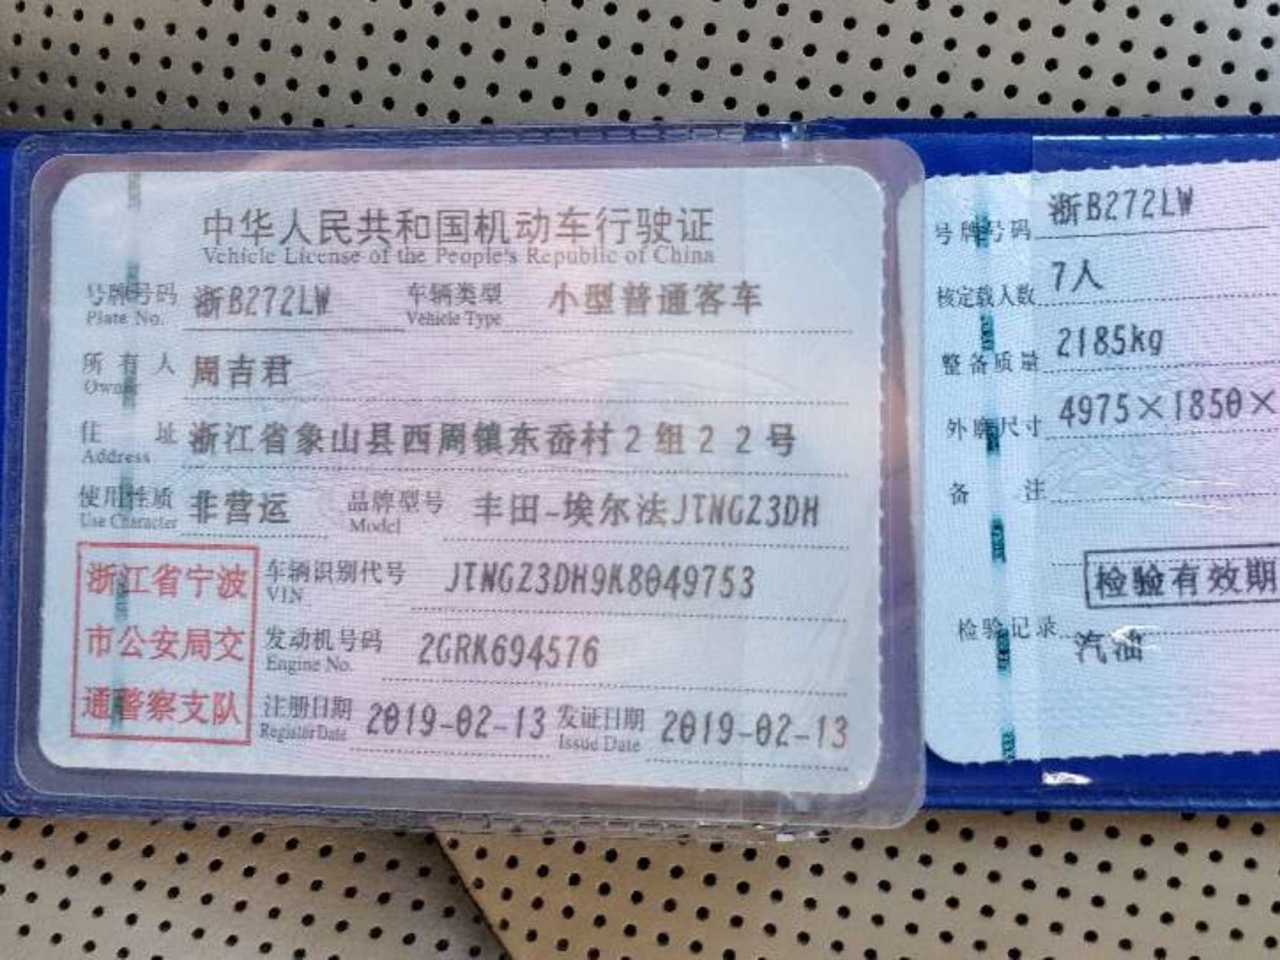 中华人民共和国机动车行驶证
Vehicle License of the People's Republic of China
号牌号码 浙B272LW 车辆类型 小型普通客车
Plate No. Vehicle Type
所有人 周吉君
Owner
住址 浙江省象山县西周镇东岙村2组22号
Address
使用性质 非营运 品牌型号 丰田-埃尔法JTNGZ3DH
Use Character Model
浙江省宁波
市公安局交
通警察支队
车辆识别代号 JTNGZ3DH9K8049753
VIN
发动机号码 2GRK694576
Engine No.
注册日期 2019-02-13 发证日期 2019-02-13
Register Date Issue Date
号牌号码 浙B272LW
核定载人数 7人
整备质量 2185kg
外廓尺寸 4975×1850×
备注
检验有效期
检验记录
汽油